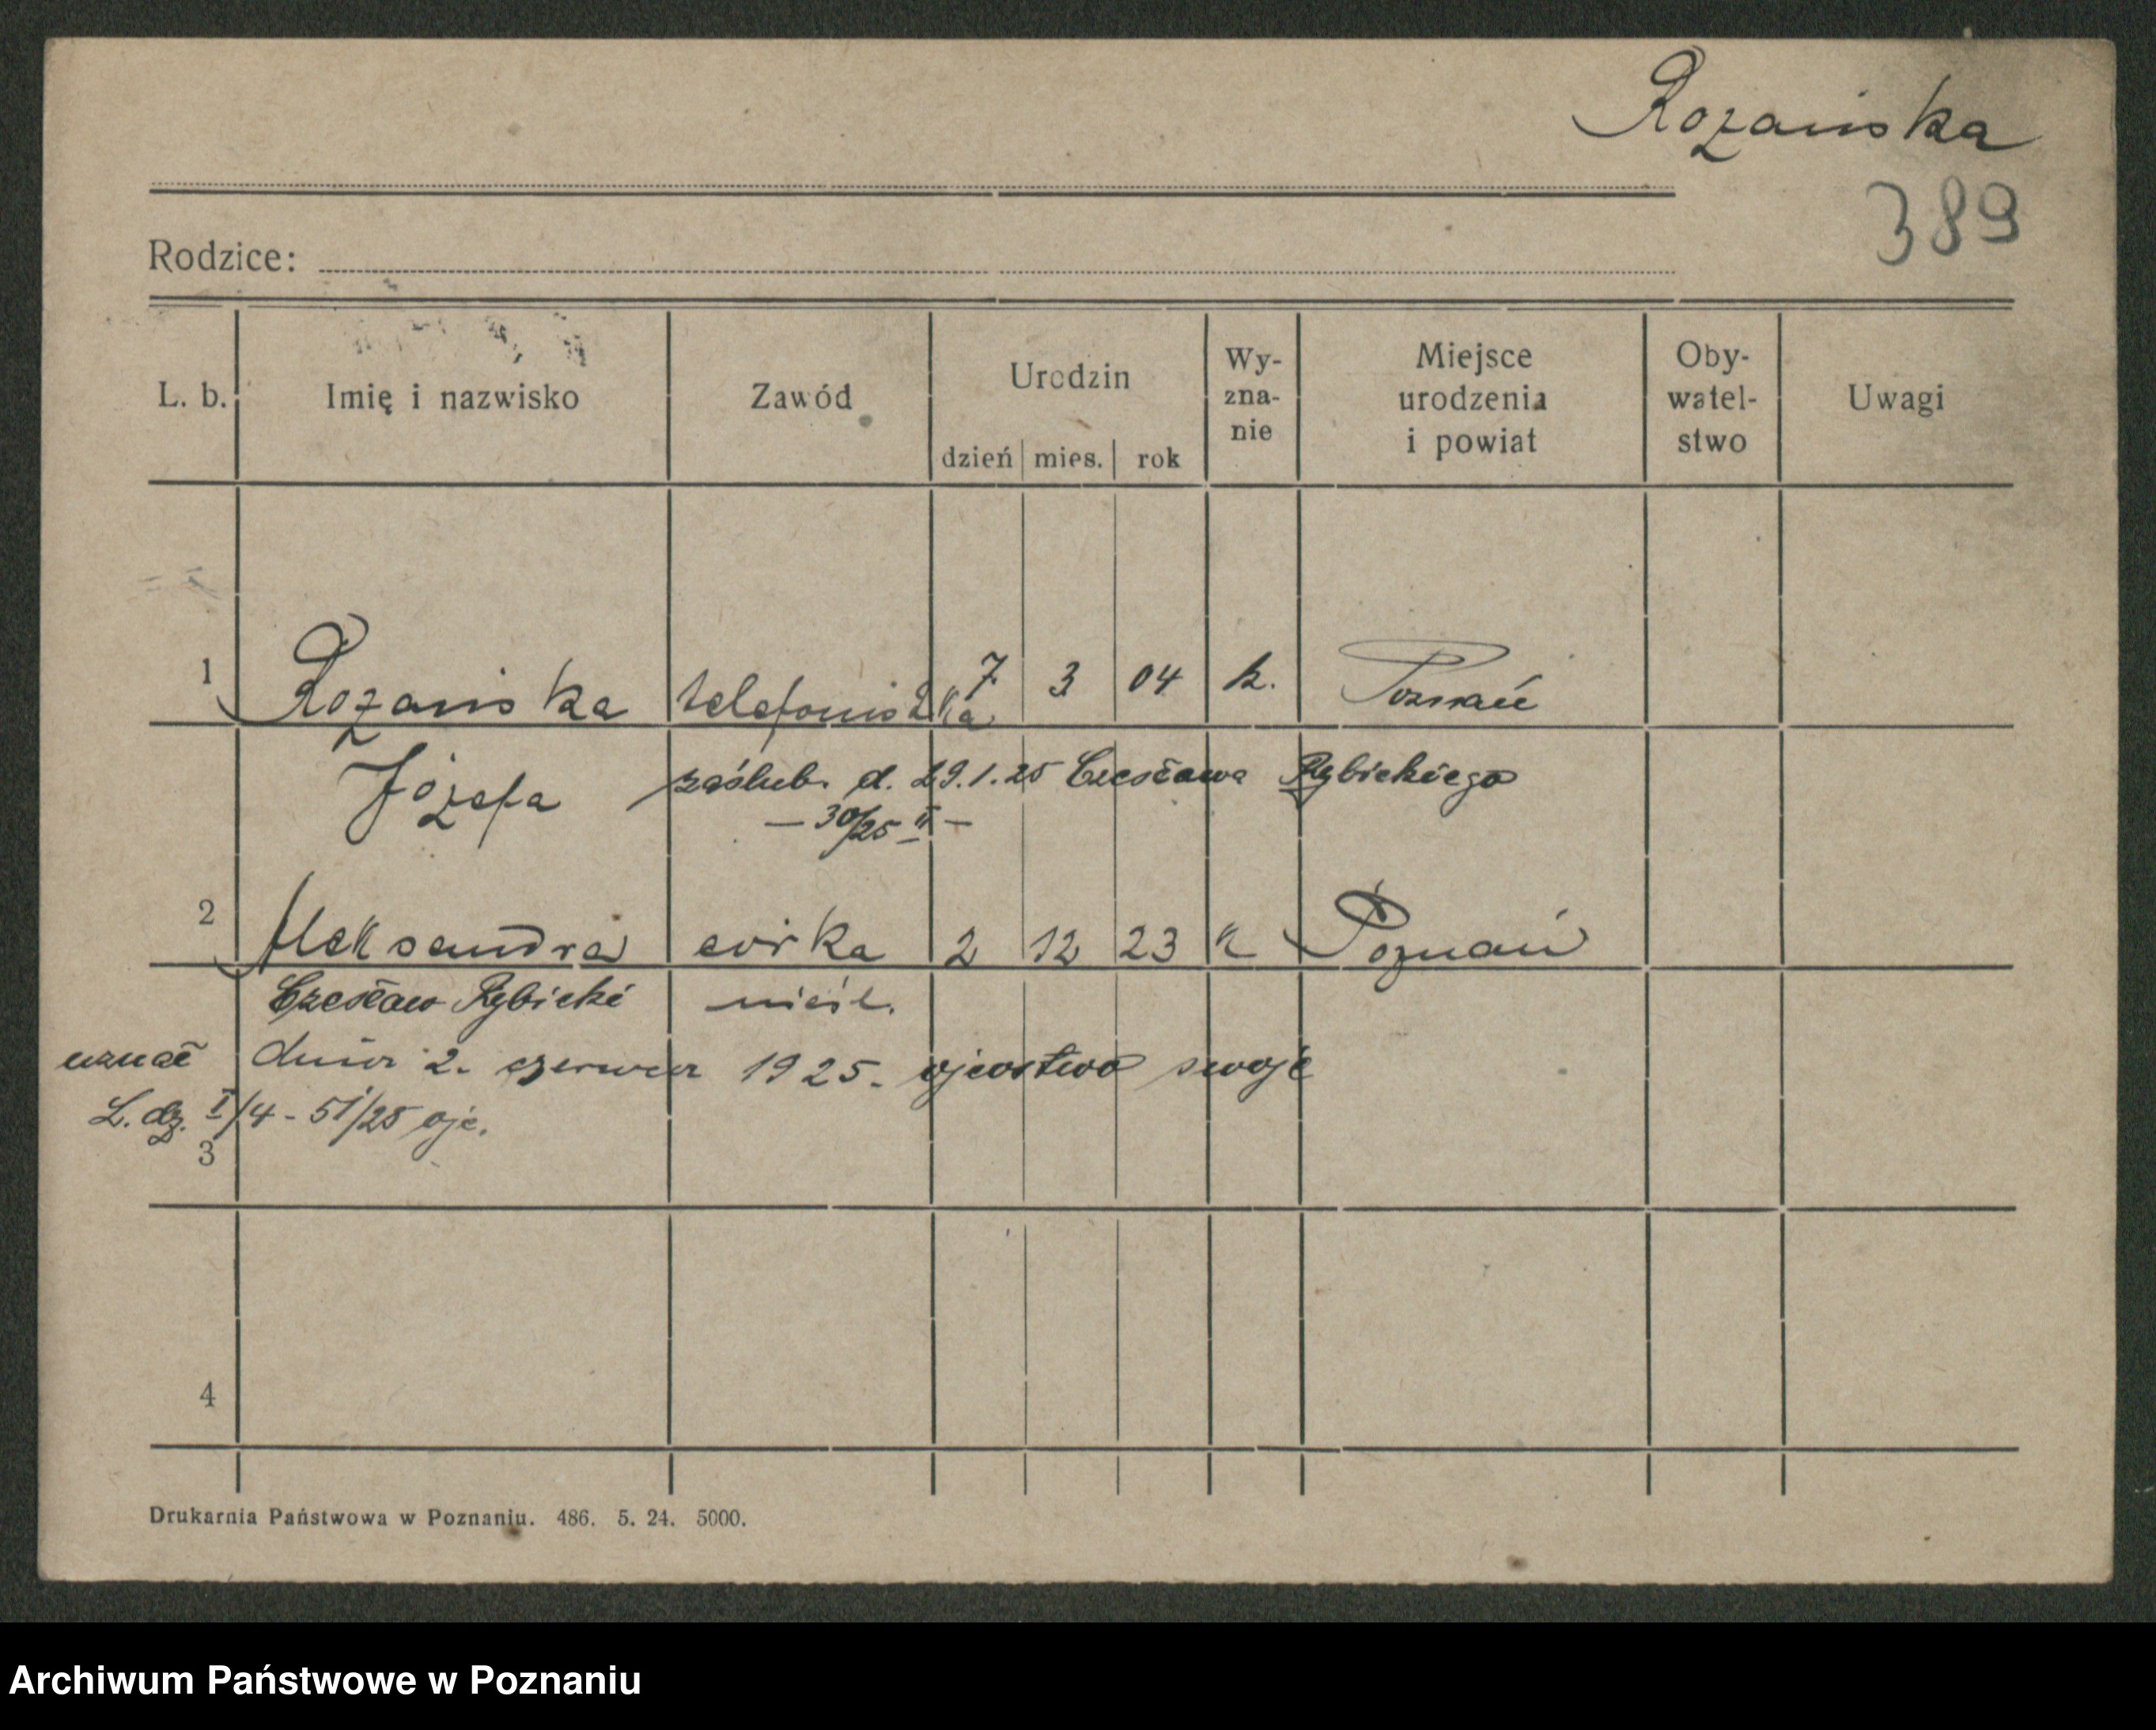 Rozańska
389
Rodzice:
L. b. Imię i nazwisko Zawód Urodzin Wy- Miejsce Oby- Uwagi
zna- urodzenia watel-
nie i powiat stwo
dzień mies. rok
1 Rozańska telefonistka 7 3 04 k. Poznań
Józefa zaślub. d. 29.1.25 Czesława Rybickiego
— 30/25 II —
2 Aleksandra córka 2 12 23 k Poznań
Czesław Rybicki nieśl.
uznał dnia 2. czerwca 1925. ojcostwo swoje
L. dz. I/4 - 51/25 ojc.
3
4
Drukarnia Państwowa w Poznaniu. 486. 5. 24. 5000.
Archiwum Państwowe w Poznaniu